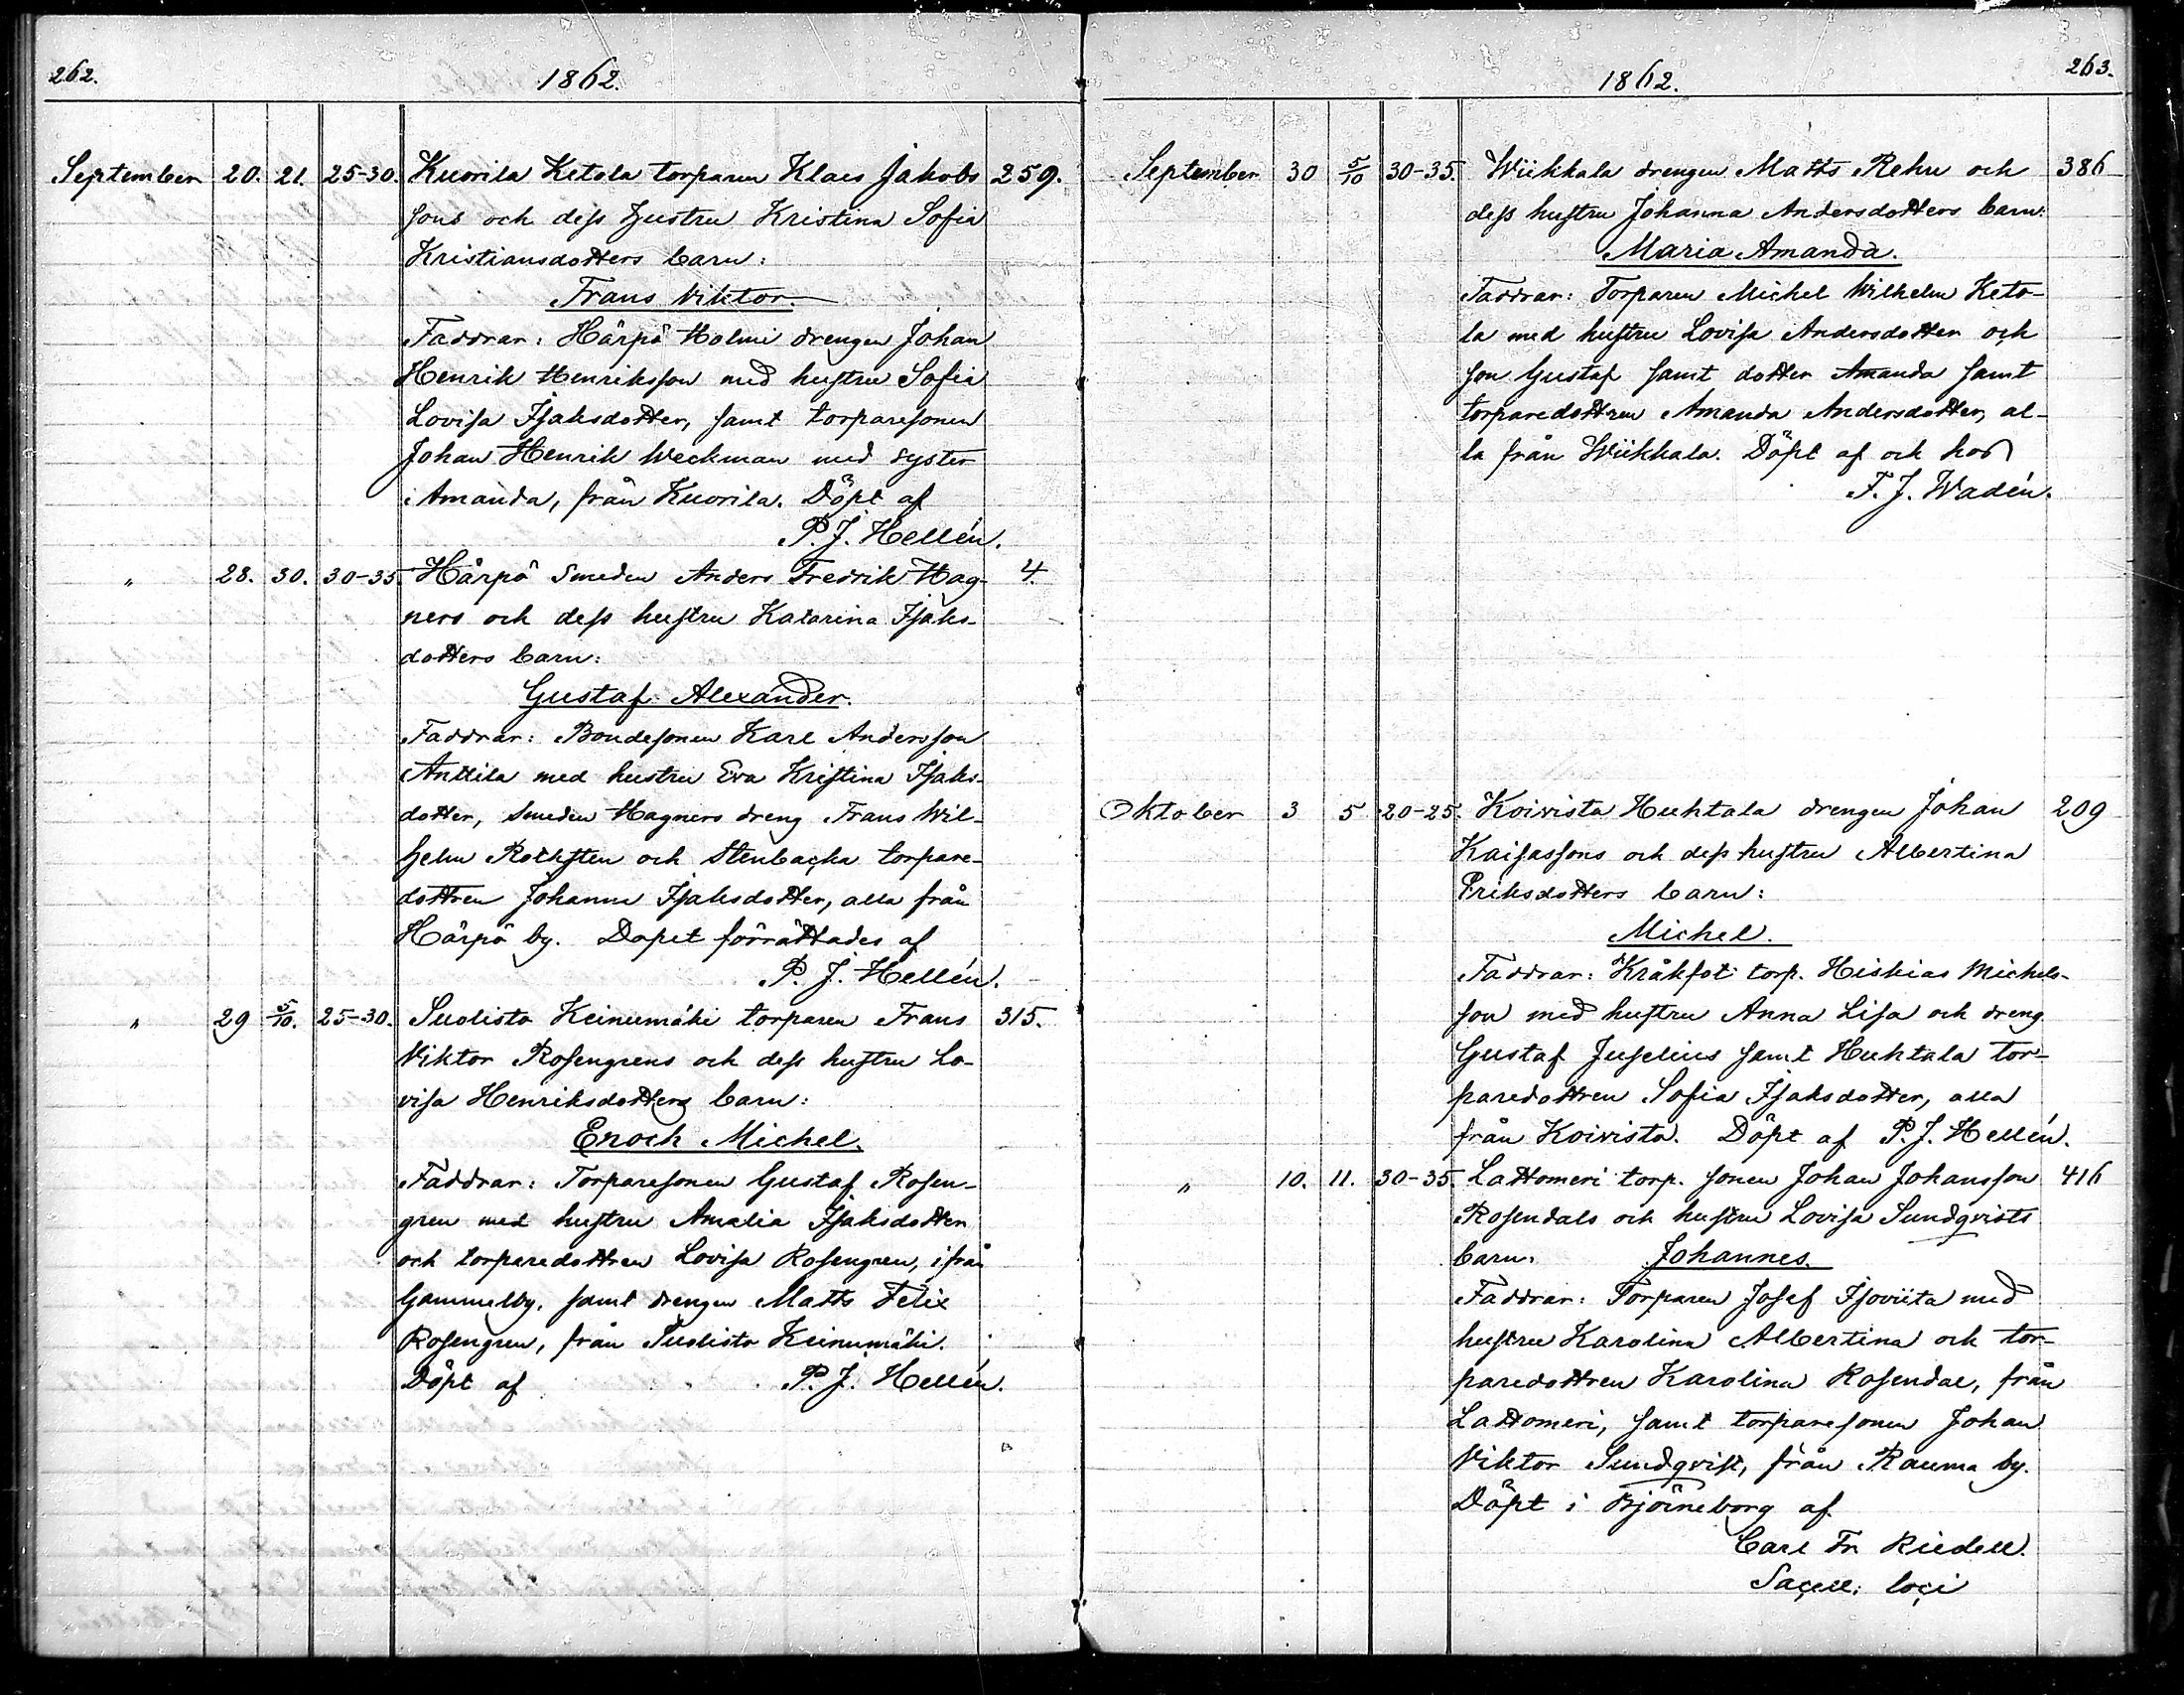 262.
1862.
September 20. 21. 25-30. Kuorila Ketola torparen Klaes Jakobs 259.
sons och dess hustru Kristina Sofia
Kristiansdotters barn:
Frans Viktor.
Faddrar: Härpö Holmi drengen Johan
Henrik Henriksson med hustru Sofia
Lovisa Isaksdotter, samt torparesonen
Johan Henrik Weckman med syster
Amanda, från Kuorila. Döpt af
P. J. Hellén.
" 28. 30. 30-35. Härpö Smeden Anders Fredrik Hag- 4.
ners och dess hustru Katarina Isaks-
dotters barn:
Gustaf Alexander.
Faddrar: Bondesonen Karl Andersson
Anttila med hustru Eva Kristina Isaks-
dotter, Smeden Hagners dreng Frans Wil-
helm Rothsten och Stenbacka torpare-
dottren Johanna Isaksdotter, alla från
Härpö by. Dopet förrättades af
P. J. Hellén.
" 29 5/10. 25-30. Suolisto Keinumäki torparen Frans 315.
Viktor Rosengrens och dess hustru Lo-
visa Henriksdotters barn:
Enoch Michel.
Faddrar: Torparesonen Gustaf Rosen-
gren med hustru Amalia Isaksdotter
och torparedottren Lovisa Rosengren, ifrån
Gammelby, samt drengen Matts Felix
Rosengren, från Suolisto Keinumäki.
Döpt af P. J. Hellén.
263.
1862.
September 30 5/10 30-35. Wiikkala drengen Matts Rehn och 386
dess hustru Johanna Andersdotters barn:
Maria Amanda.
Faddrar: Torparen Michel Wilhelm Keto-
la med hustru Lovisa Andersdotter och
son Gustaf samt dotter Amanda samt
torparedottren Amanda Andersdotter, al-
la från Wiikkala. Döpt af och hos
F. J. Wadén.
Oktober 3 5 20-25. Koivisto Huhtala drengen Johan 209
Kaisassons och dess hustru Albertina
Eriksdotters barn:
Michel.
Faddrar: Kråkfot torp. Hiskias Michels-
son med hustru Anna Lisa och dreng
Gustaf Juselius samt Huhtala tor-
paredottren Sofia Isaksdotter, alla
från Koivisto. Döpt af P. J. Hellén.
" 10. 11. 30-35. Lattomeri torp. sonen Johan Johansson 416
Rosendals och hustru Lovisa Sundqvists
barn: Johannes.
Faddrar: Torparen Josef Isoviita med
hustru Karolina Albertina och tor-
paredottren Karolina Rosendal, från
Lattomeri, samt torparesonen Johan
Viktor Sundqvist, från Rauma by.
Döpt i Björneborg af
Carl Fr. Riedell.
Sacell: loci